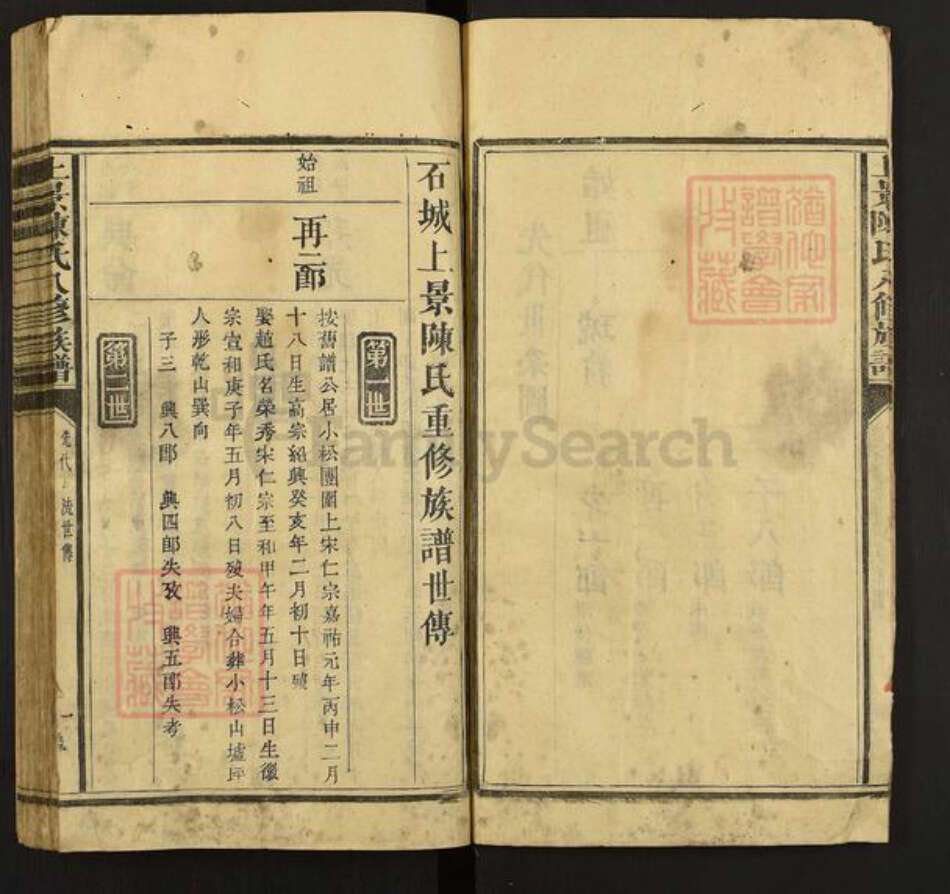 上景陳氏八修族譜
石城上景陳氏重修族譜世傳
第一世
始祖
再二郎
按舊譜公居小松團圍上宋仁宗嘉祐元年丙申二月
十八日生高宗紹興癸亥年二月初十日歿
娶趙氏名榮秀宋仁宗至和甲午年五月十三日生徽
宗宣和庚子年五月初八日歿夫婦合葬小松山墟坪
人形乾山巽向
子三 興八郎 興四郎失攷 興五郎失考
第二世
上景陳氏八修族譜
先代 流世傳
一
FamilySearch